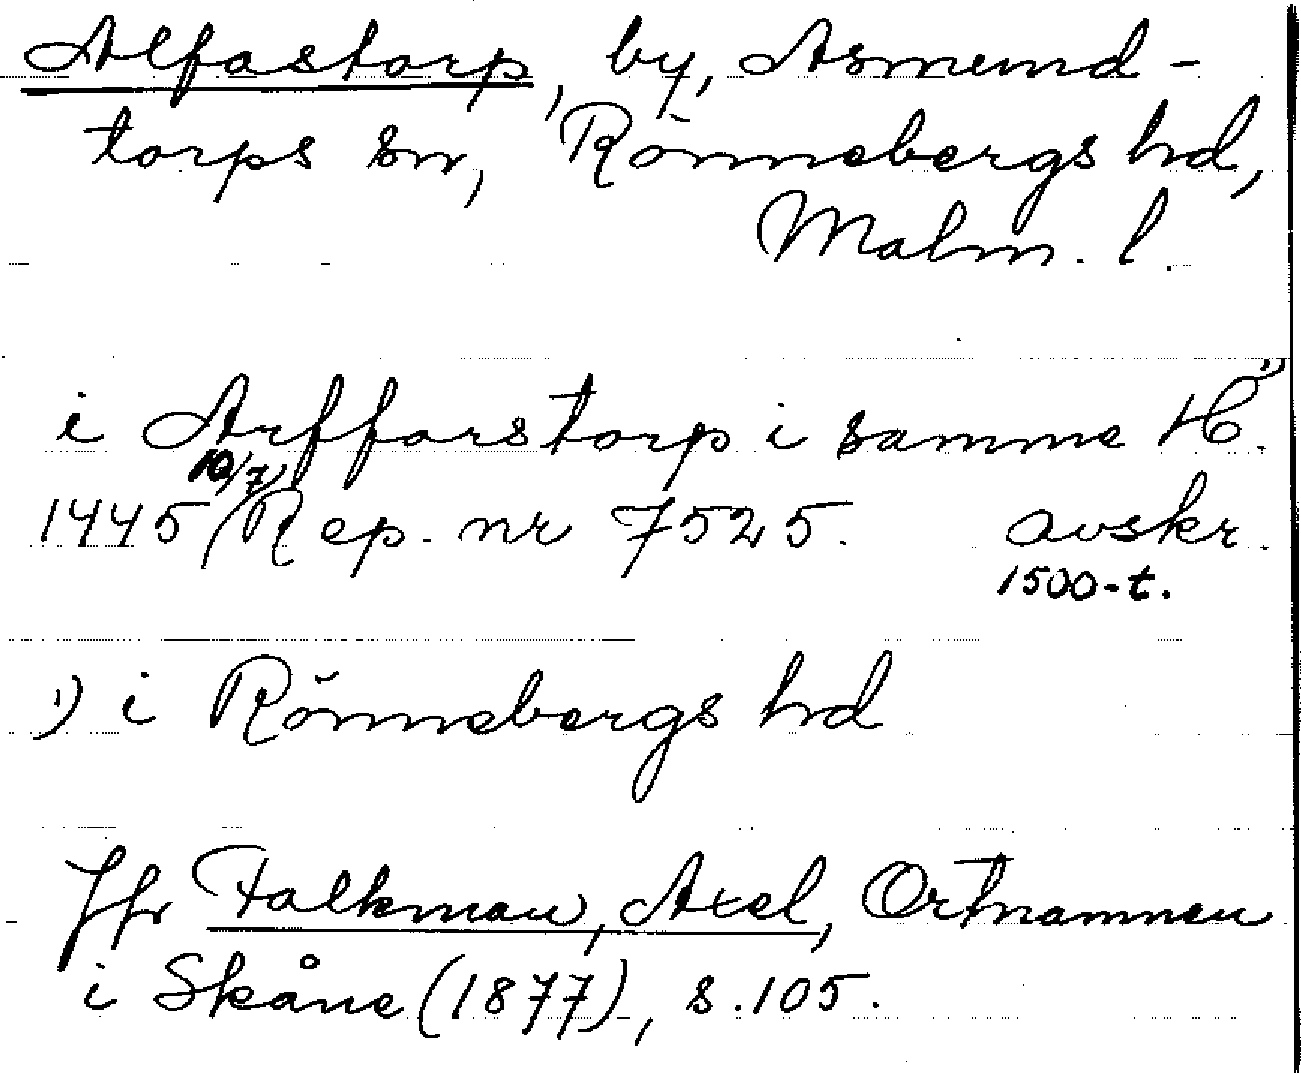 Alfastorp, by, Asmund-
torps sn, Rönnebergs hd,
Malm. l.
i Arfforstorp i samme H. 1)
1445 10/7 Rep. nr 7525. avskr.
1500-t.
1) i Rönnebergs hd
Jfr Falkman, Axel, Ortnamnen
i Skåne (1877), s. 105.